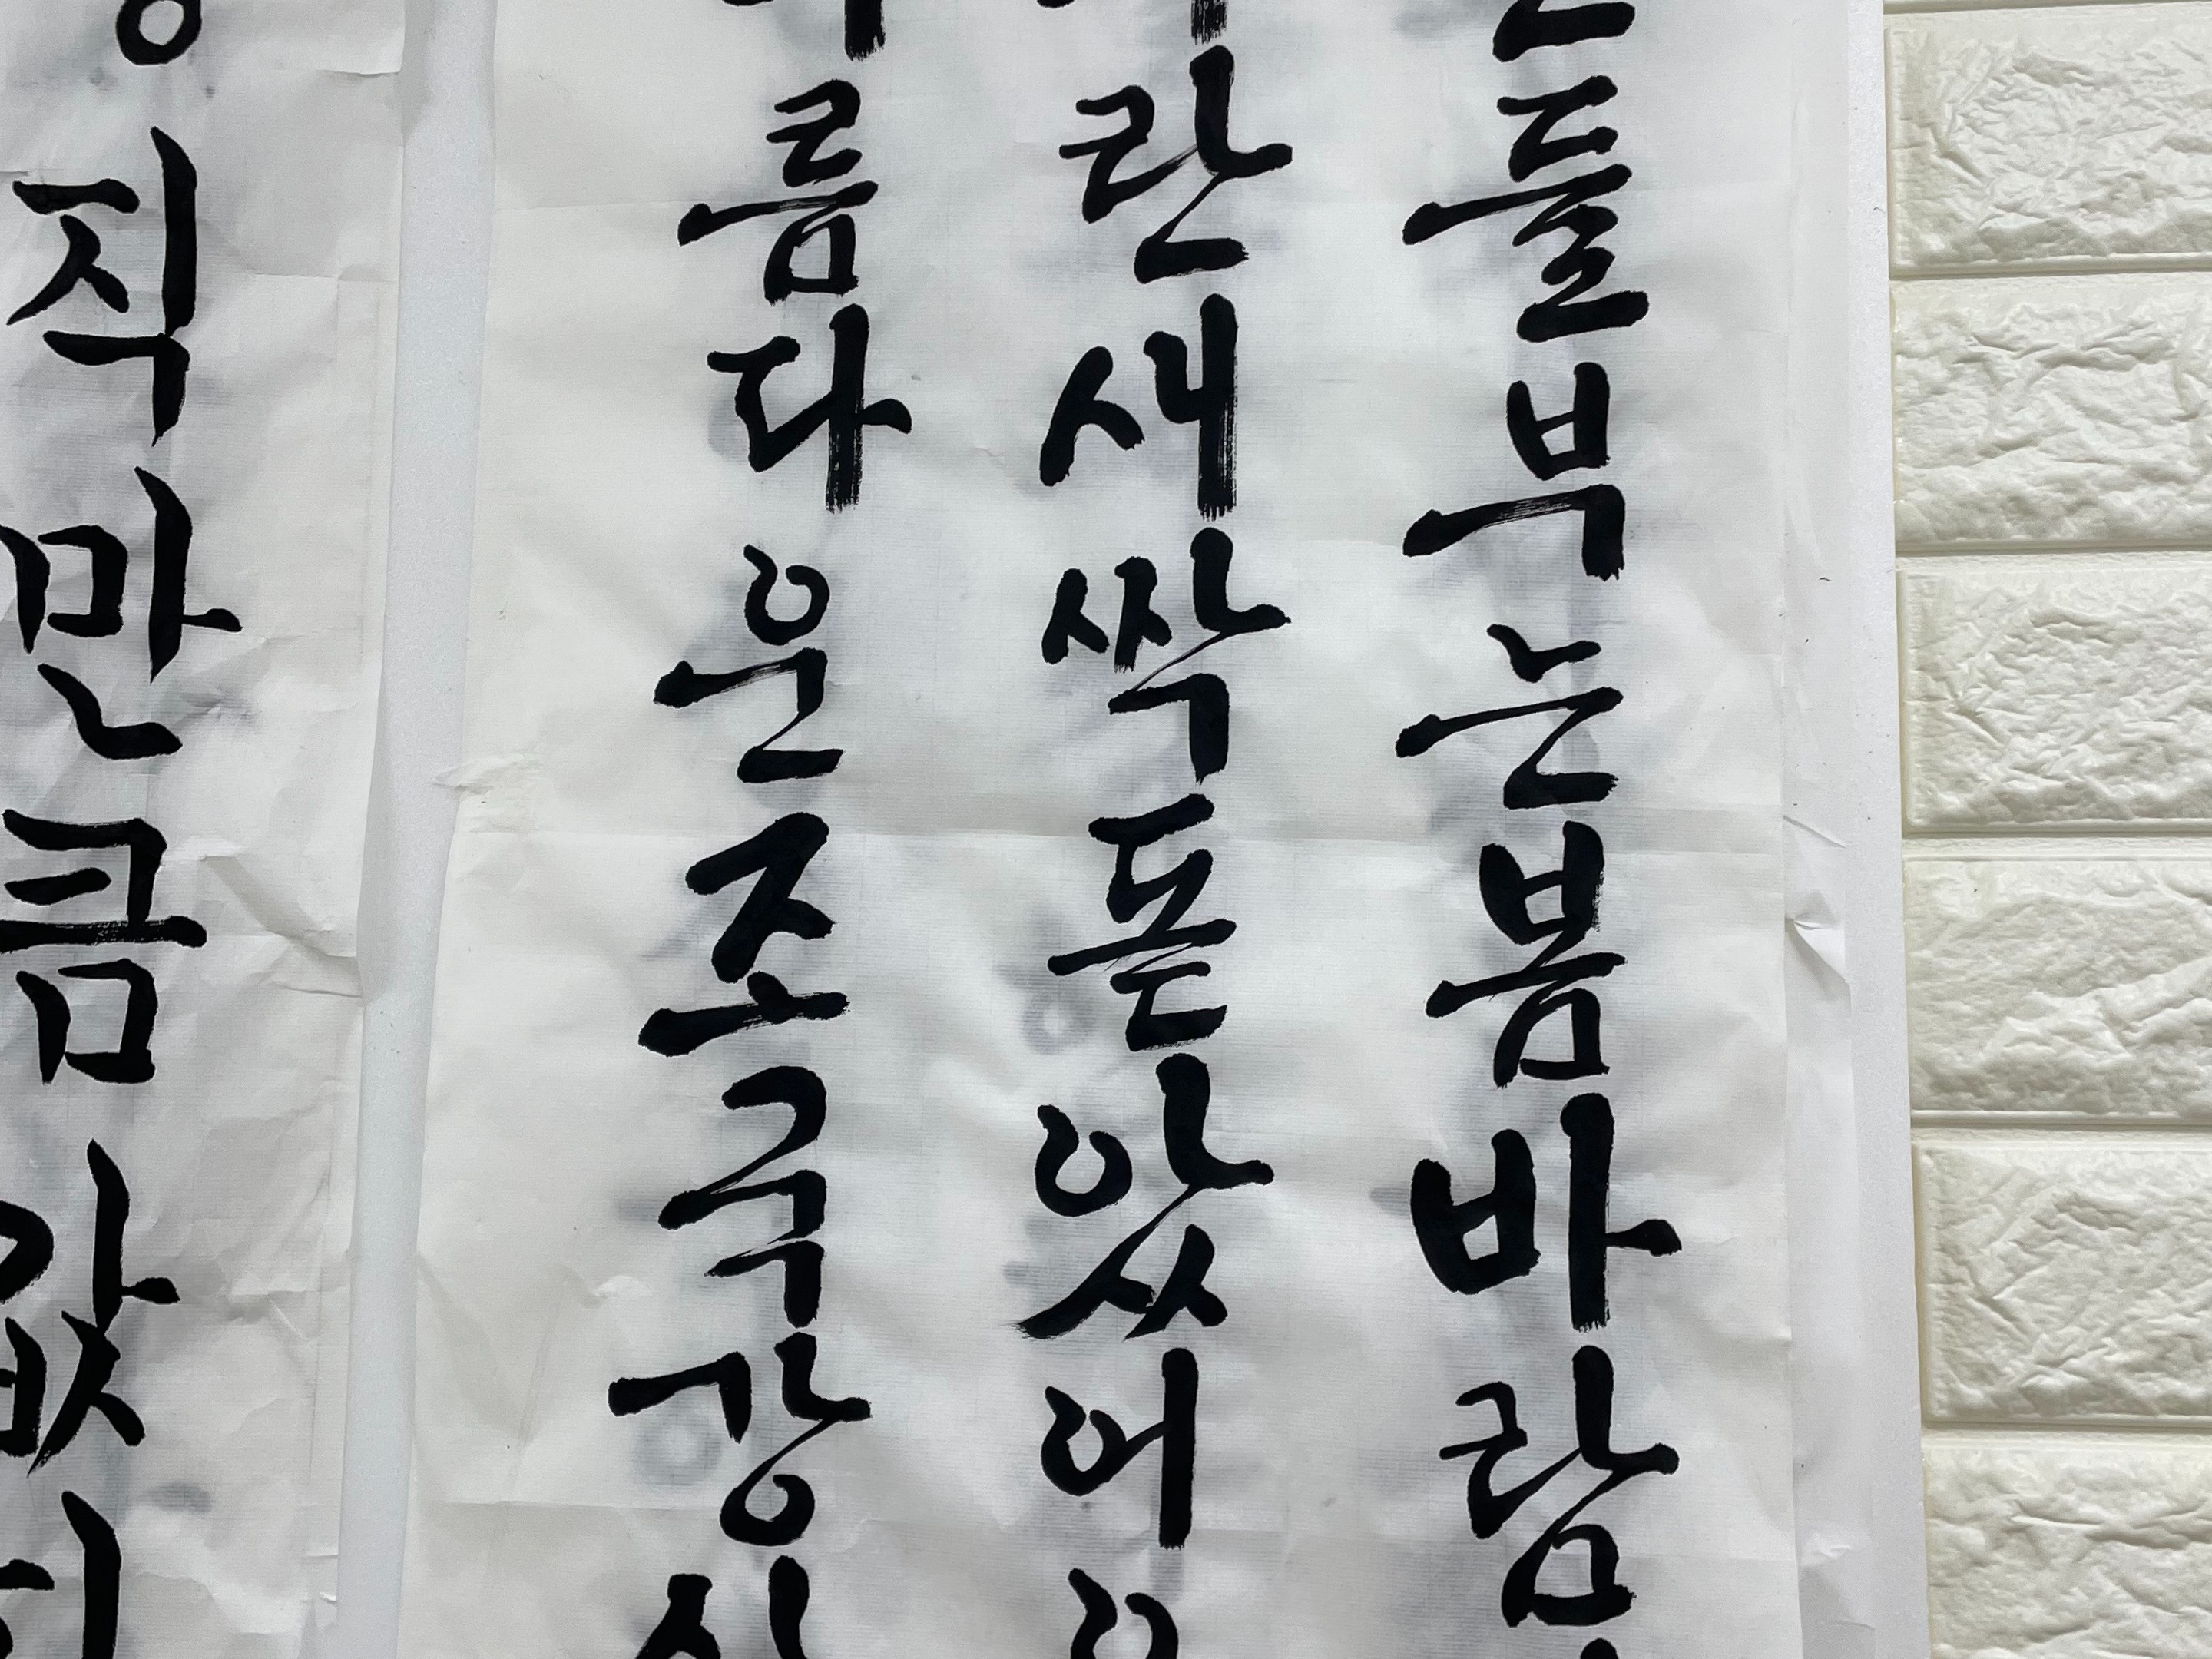 들부는봄바람
란새싹돋았어
름다운조국강
직만큼값